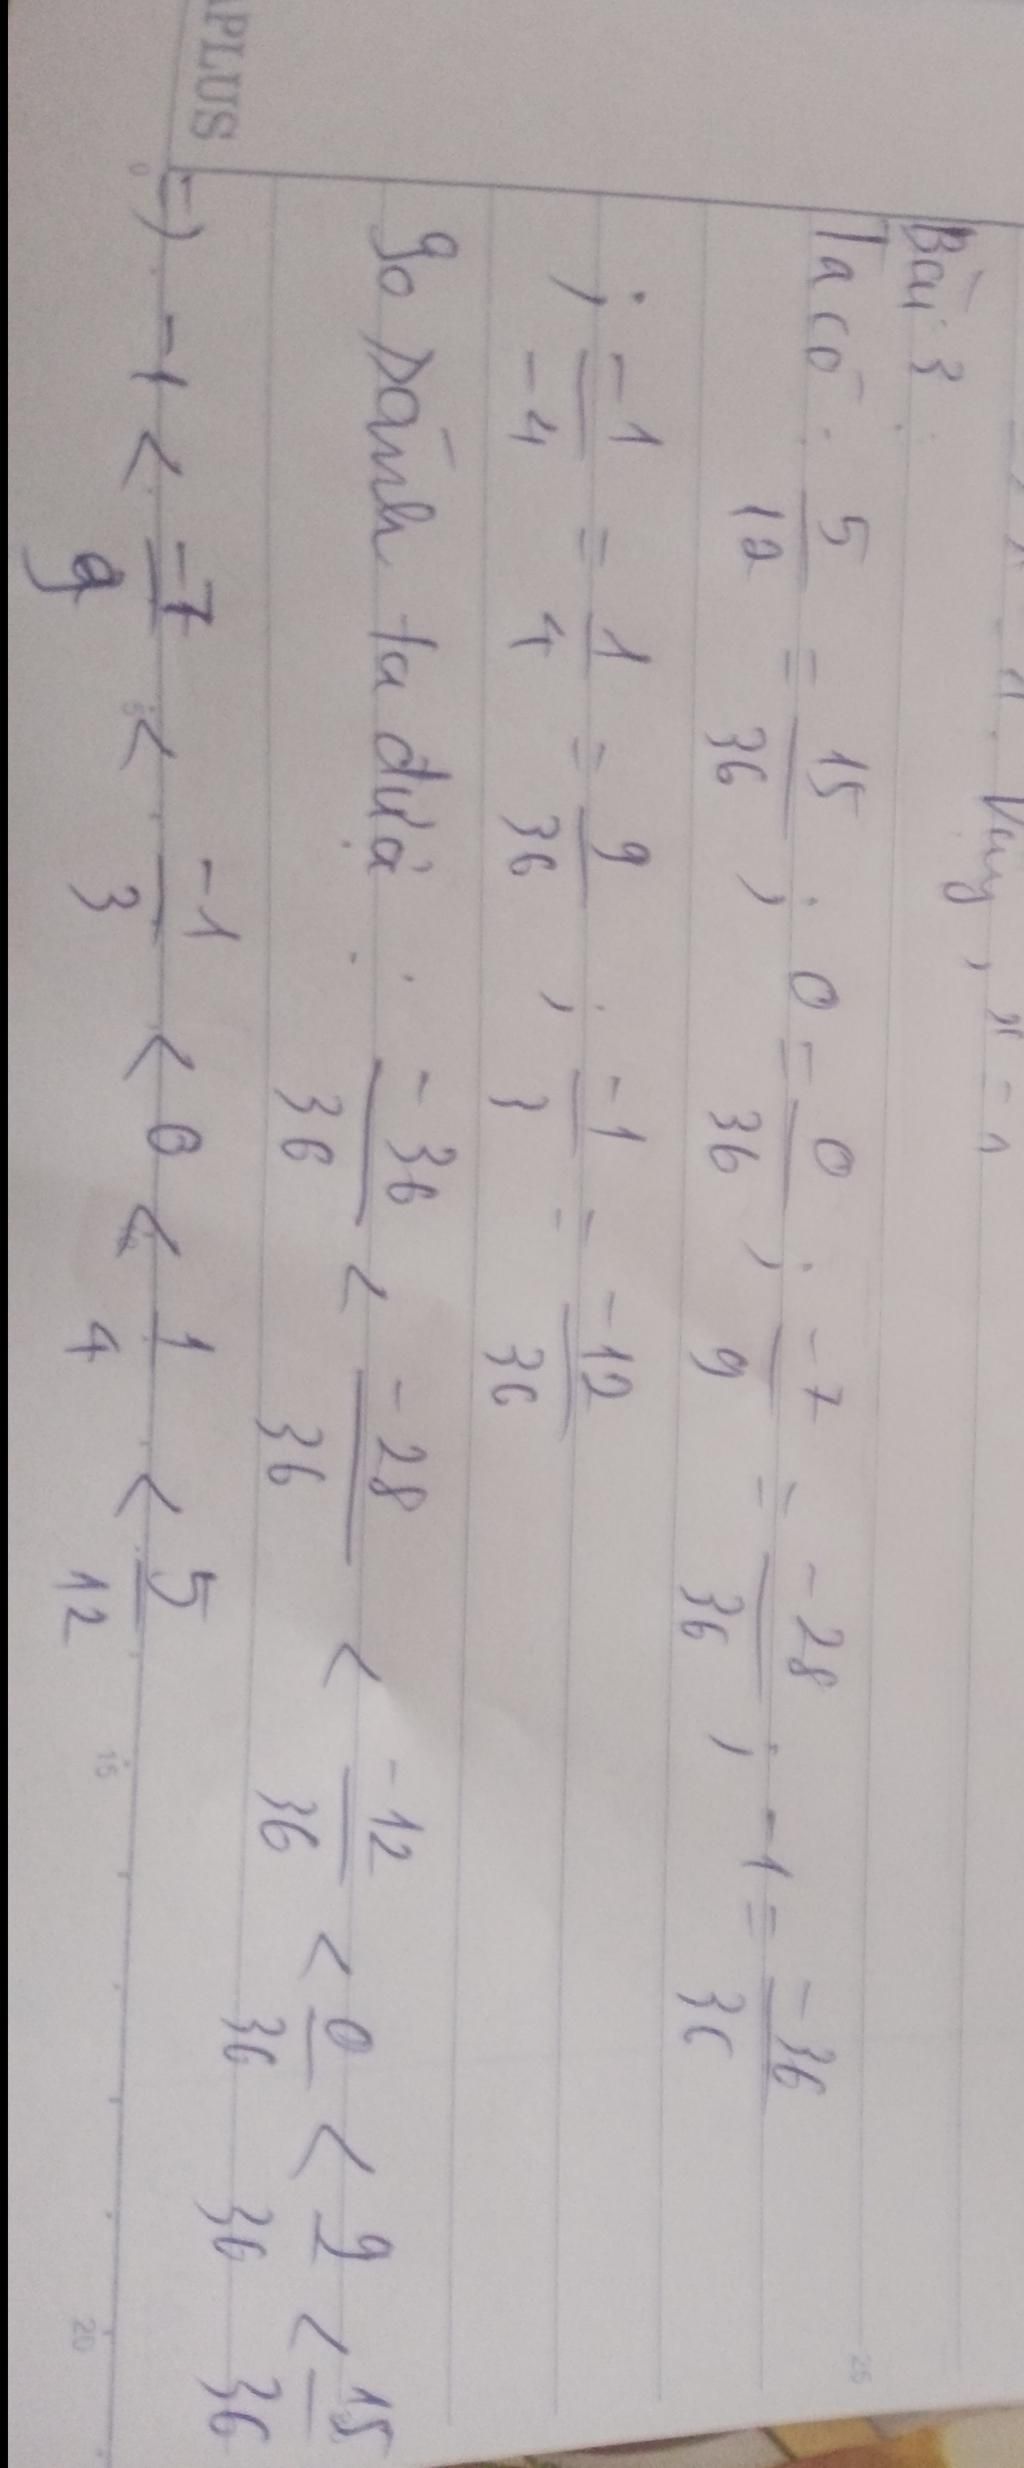 Vậy, x = 1
Bài 3
Ta có: 5/12 = 15/36 ; 0 = 0/36 ; -7/9 = -28/36 ; -1 = -36/36
; -1/-4 = 1/4 = 9/36 ; -1/3 = -12/36
So sánh ta được: -36/36 < -28/36 < -12/36 < 0/36 < 9/36 < 15/36
=) -1 < -7/9 < -1/3 < 0 < 1/4 < 5/12
APLUS
0 5 10 15 20
25